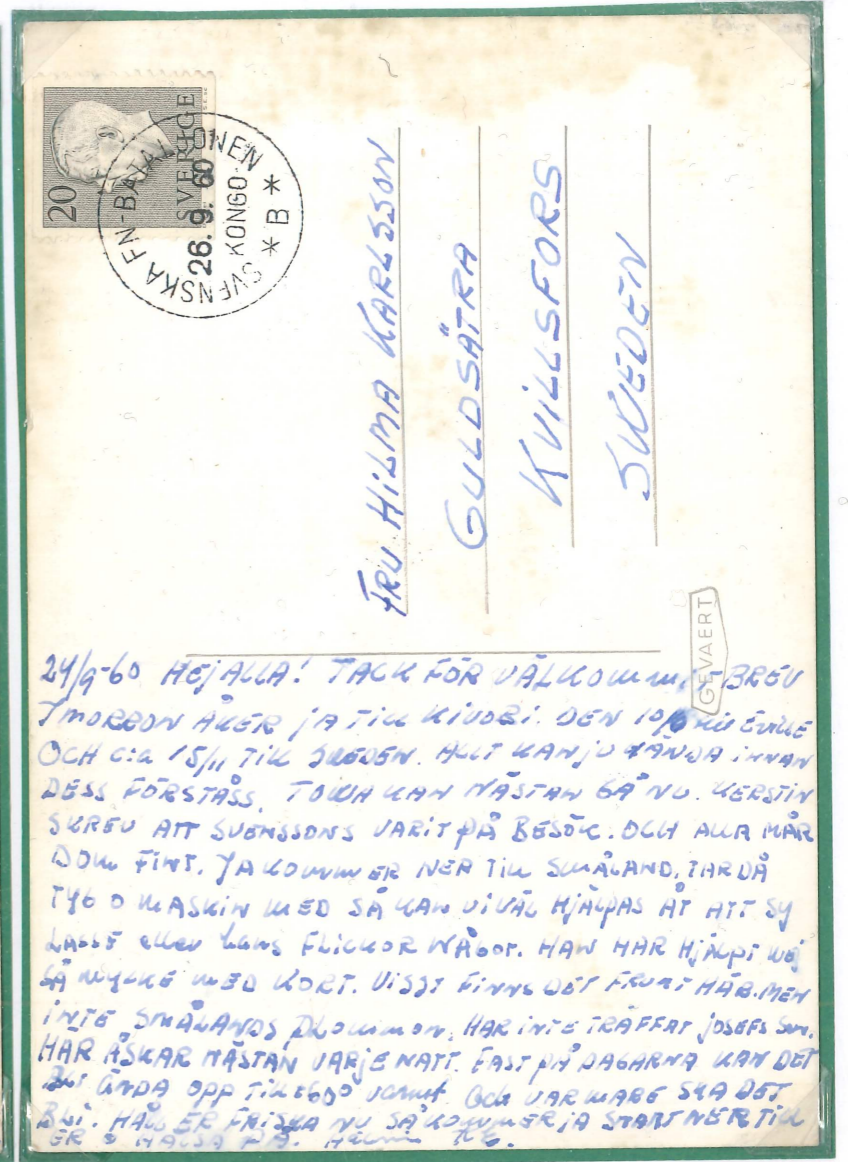 20
SVERIGE
SVENSKA FN-BATALJONEN
26.9.60
KONGO
* B *
FRU HILMA KARLSSON
GULDSÄTRA
KVILLSFORS
SWEDEN
GEVAERT
24/9-60 HEJ ALLA! TACK FÖR VÄLKOMMI-BREV
IMORRON ÅKER JA TILL KIVOBI. DEN 10/ EVILLE
OCH C:a 15/11 TILL SWEDEN. ALLT KAN JU HÄNDA INNAN
DESS FÖRSTÅSS. TOWA KAN NÄSTAN GÅ NU. KERSTIN
SKREV ATT SVENSSONS VARIT PÅ BESÖK. OCH ALLA MÅR
DOM FINT. JA KOMMER NER TILL SMÅLAND, TAR DÅ
TYG O MASKIN MED SÅ KAN VI VÄL HJÄLPAS ÅT ATT SY
LASSE eller hans FLICKOR NÅGOT. HAN HAR HJÄLPT MEJ
SÅ MYCKE MED KORT. VISST FINNS DET FRUKT HÄR. MEN
INTE SMÅLANDS PLOMMON. HAR INTE TRÄFFAT JOSEFS SON.
HÄR ÅSKAR NÄSTAN VARJE NATT. FAST PÅ DAGARNA KAN DET
BLI ÄNDA OPP TILL varmt. Och VARMARE SKA DET
BLI. HÅLL ER FRISKA NU SÅ KOMMER JA SNART NER TILL
ER O HÄLSA PÅ.